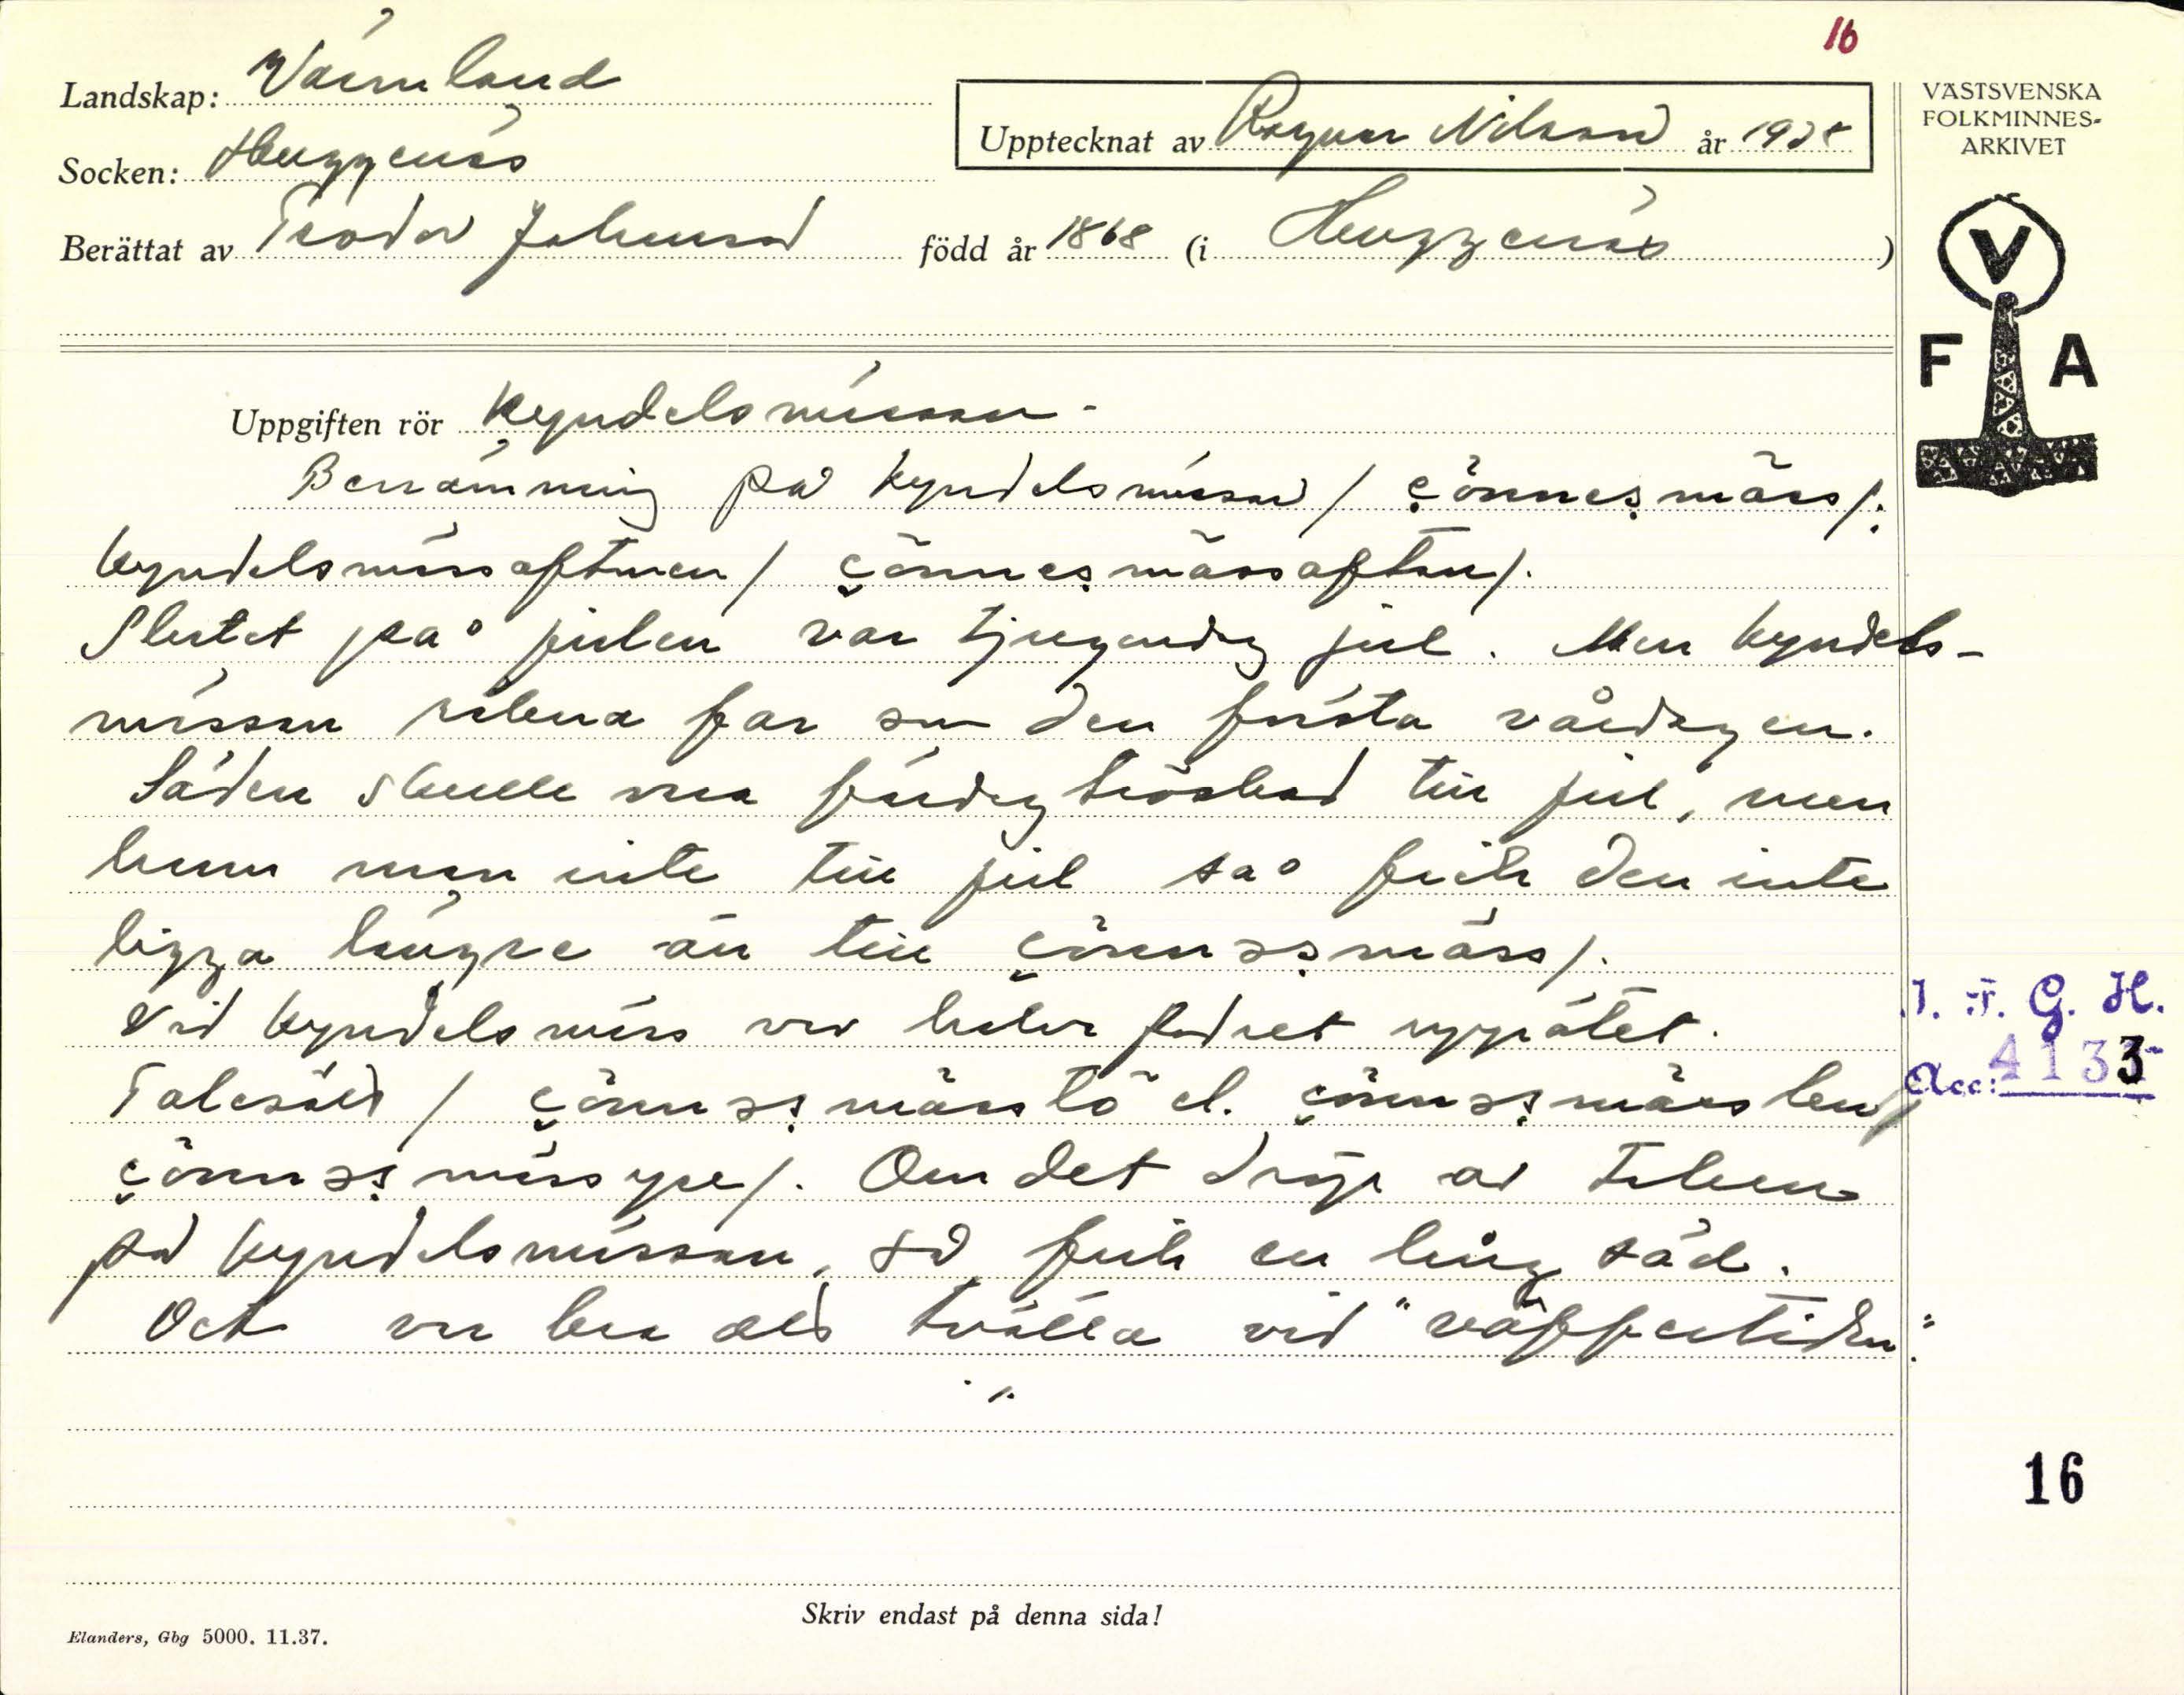 16
Landskap: Värmland
Socken: Huggenäs
Berättat av Teodor Johansson född år 1868 (i Huggenäs)
Upptecknat av Ragnar Nilsson år 1938
VÄSTSVENSKA
FOLKMINNES-
ARKIVET
V
F A
Uppgiften rör Kyndelsmässan.
Benämning på kyndelsmässan / çönnesmäss /.
kyndelsmässaftonen / çönnesmässaftan /.
Slutet på julen var tjugondag jul. Men kyndels-
mässan räknades som den första vårdagen.
Säden skulle vara färdigtröskad till jul, men
hann man inte till jul så fick den inte
ligga längre än till çönnəsmäss /.
Vid kyndelsmäss var halva fodret uppätet.
Talesätt / çönnəsmässtö el. çönnəsmäss
çönnəsmäss /. Om det dröp av taken
på kyndelsmässan, så fick en lång säd.
Det var bra att tvätta vid "
I. F. G. H.
Acc: 4133
16
Skriv endast på denna sida!
Elanders, Gbg 5000. 11.37.